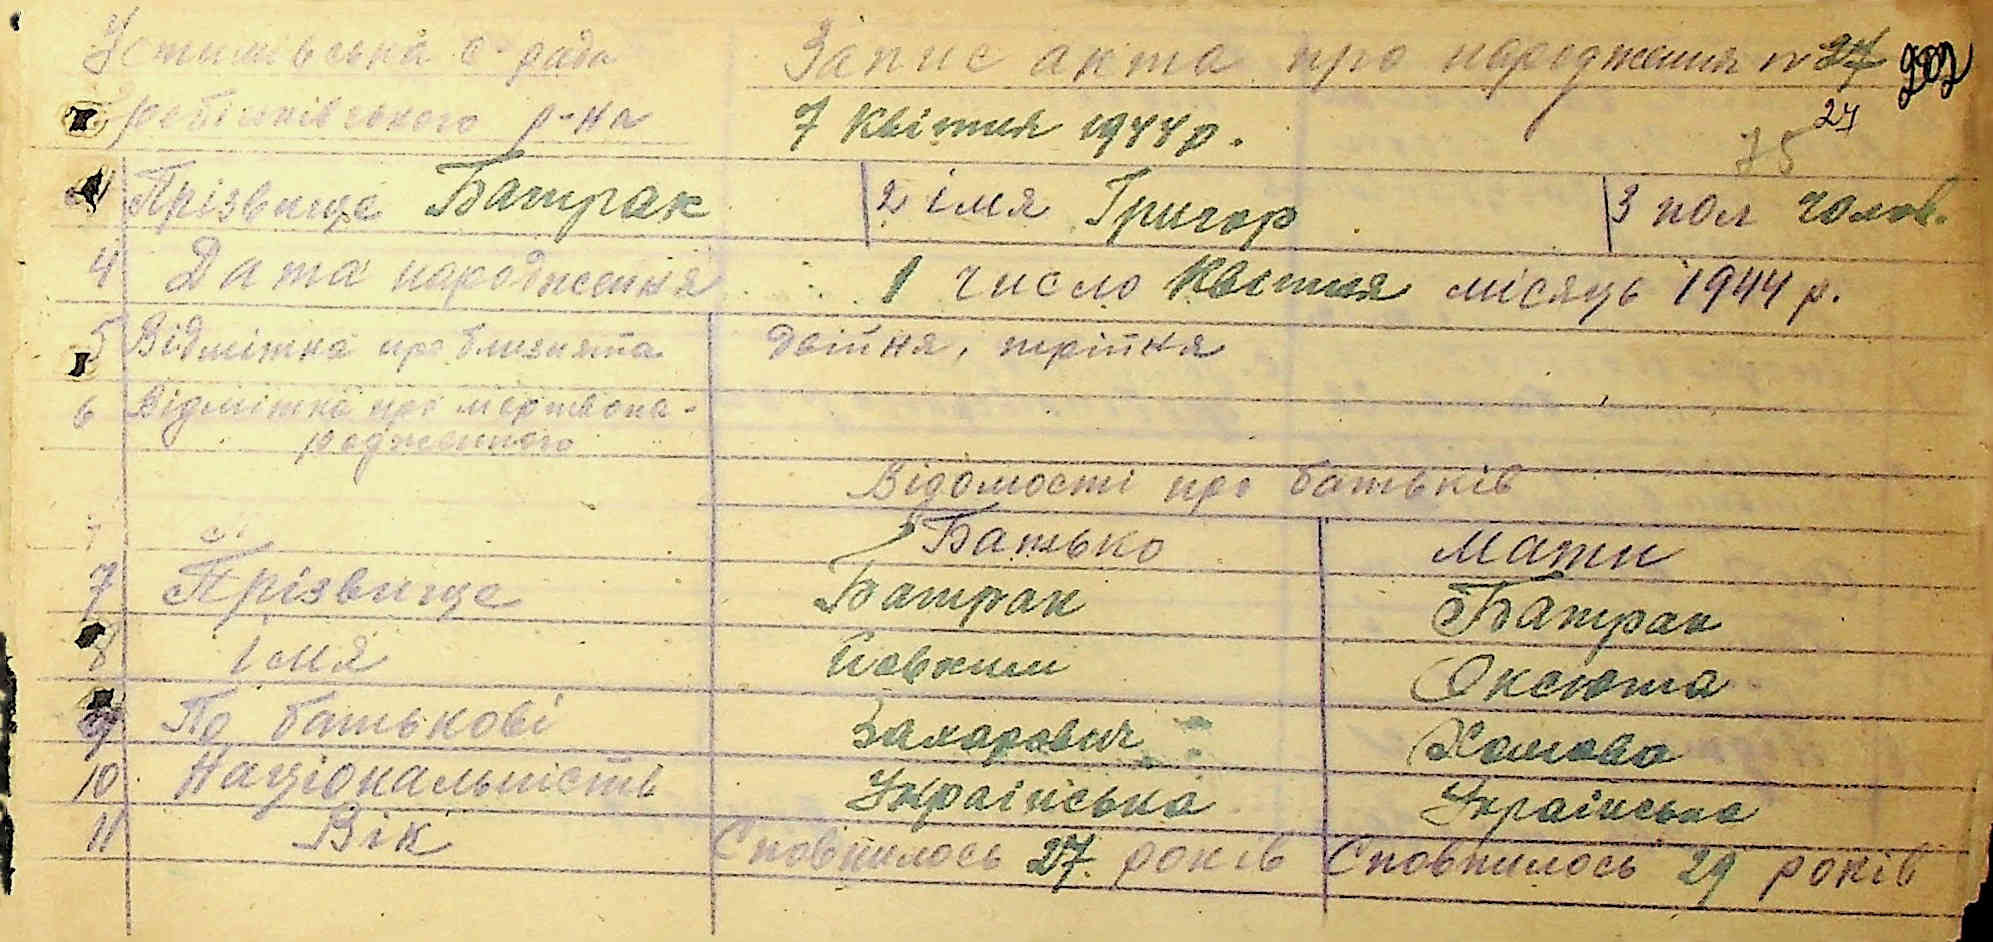 Устимівська с-рада
Запис акта про народження № 27 202
Гребінківського р-на
7 Квітня 1944 р. 27
75
1 Прізвище Батрак 2 імя Григор 3 пол чолов.
4 Дата народження 1 число Квітня місяць 1944 р.
5 Відмітка про близнята двійня, трійня
6 Відмітка про мертвона-
родженного
Відомості про батьків
Батько Мати
7 Прізвище Батрак Батрак
8 імя Йовхим Оксюта
9 По батькові Захарович Хомова
10 Національність Українська Українська
11 Вік Сповнилось 27 років Сповнилось 29 років